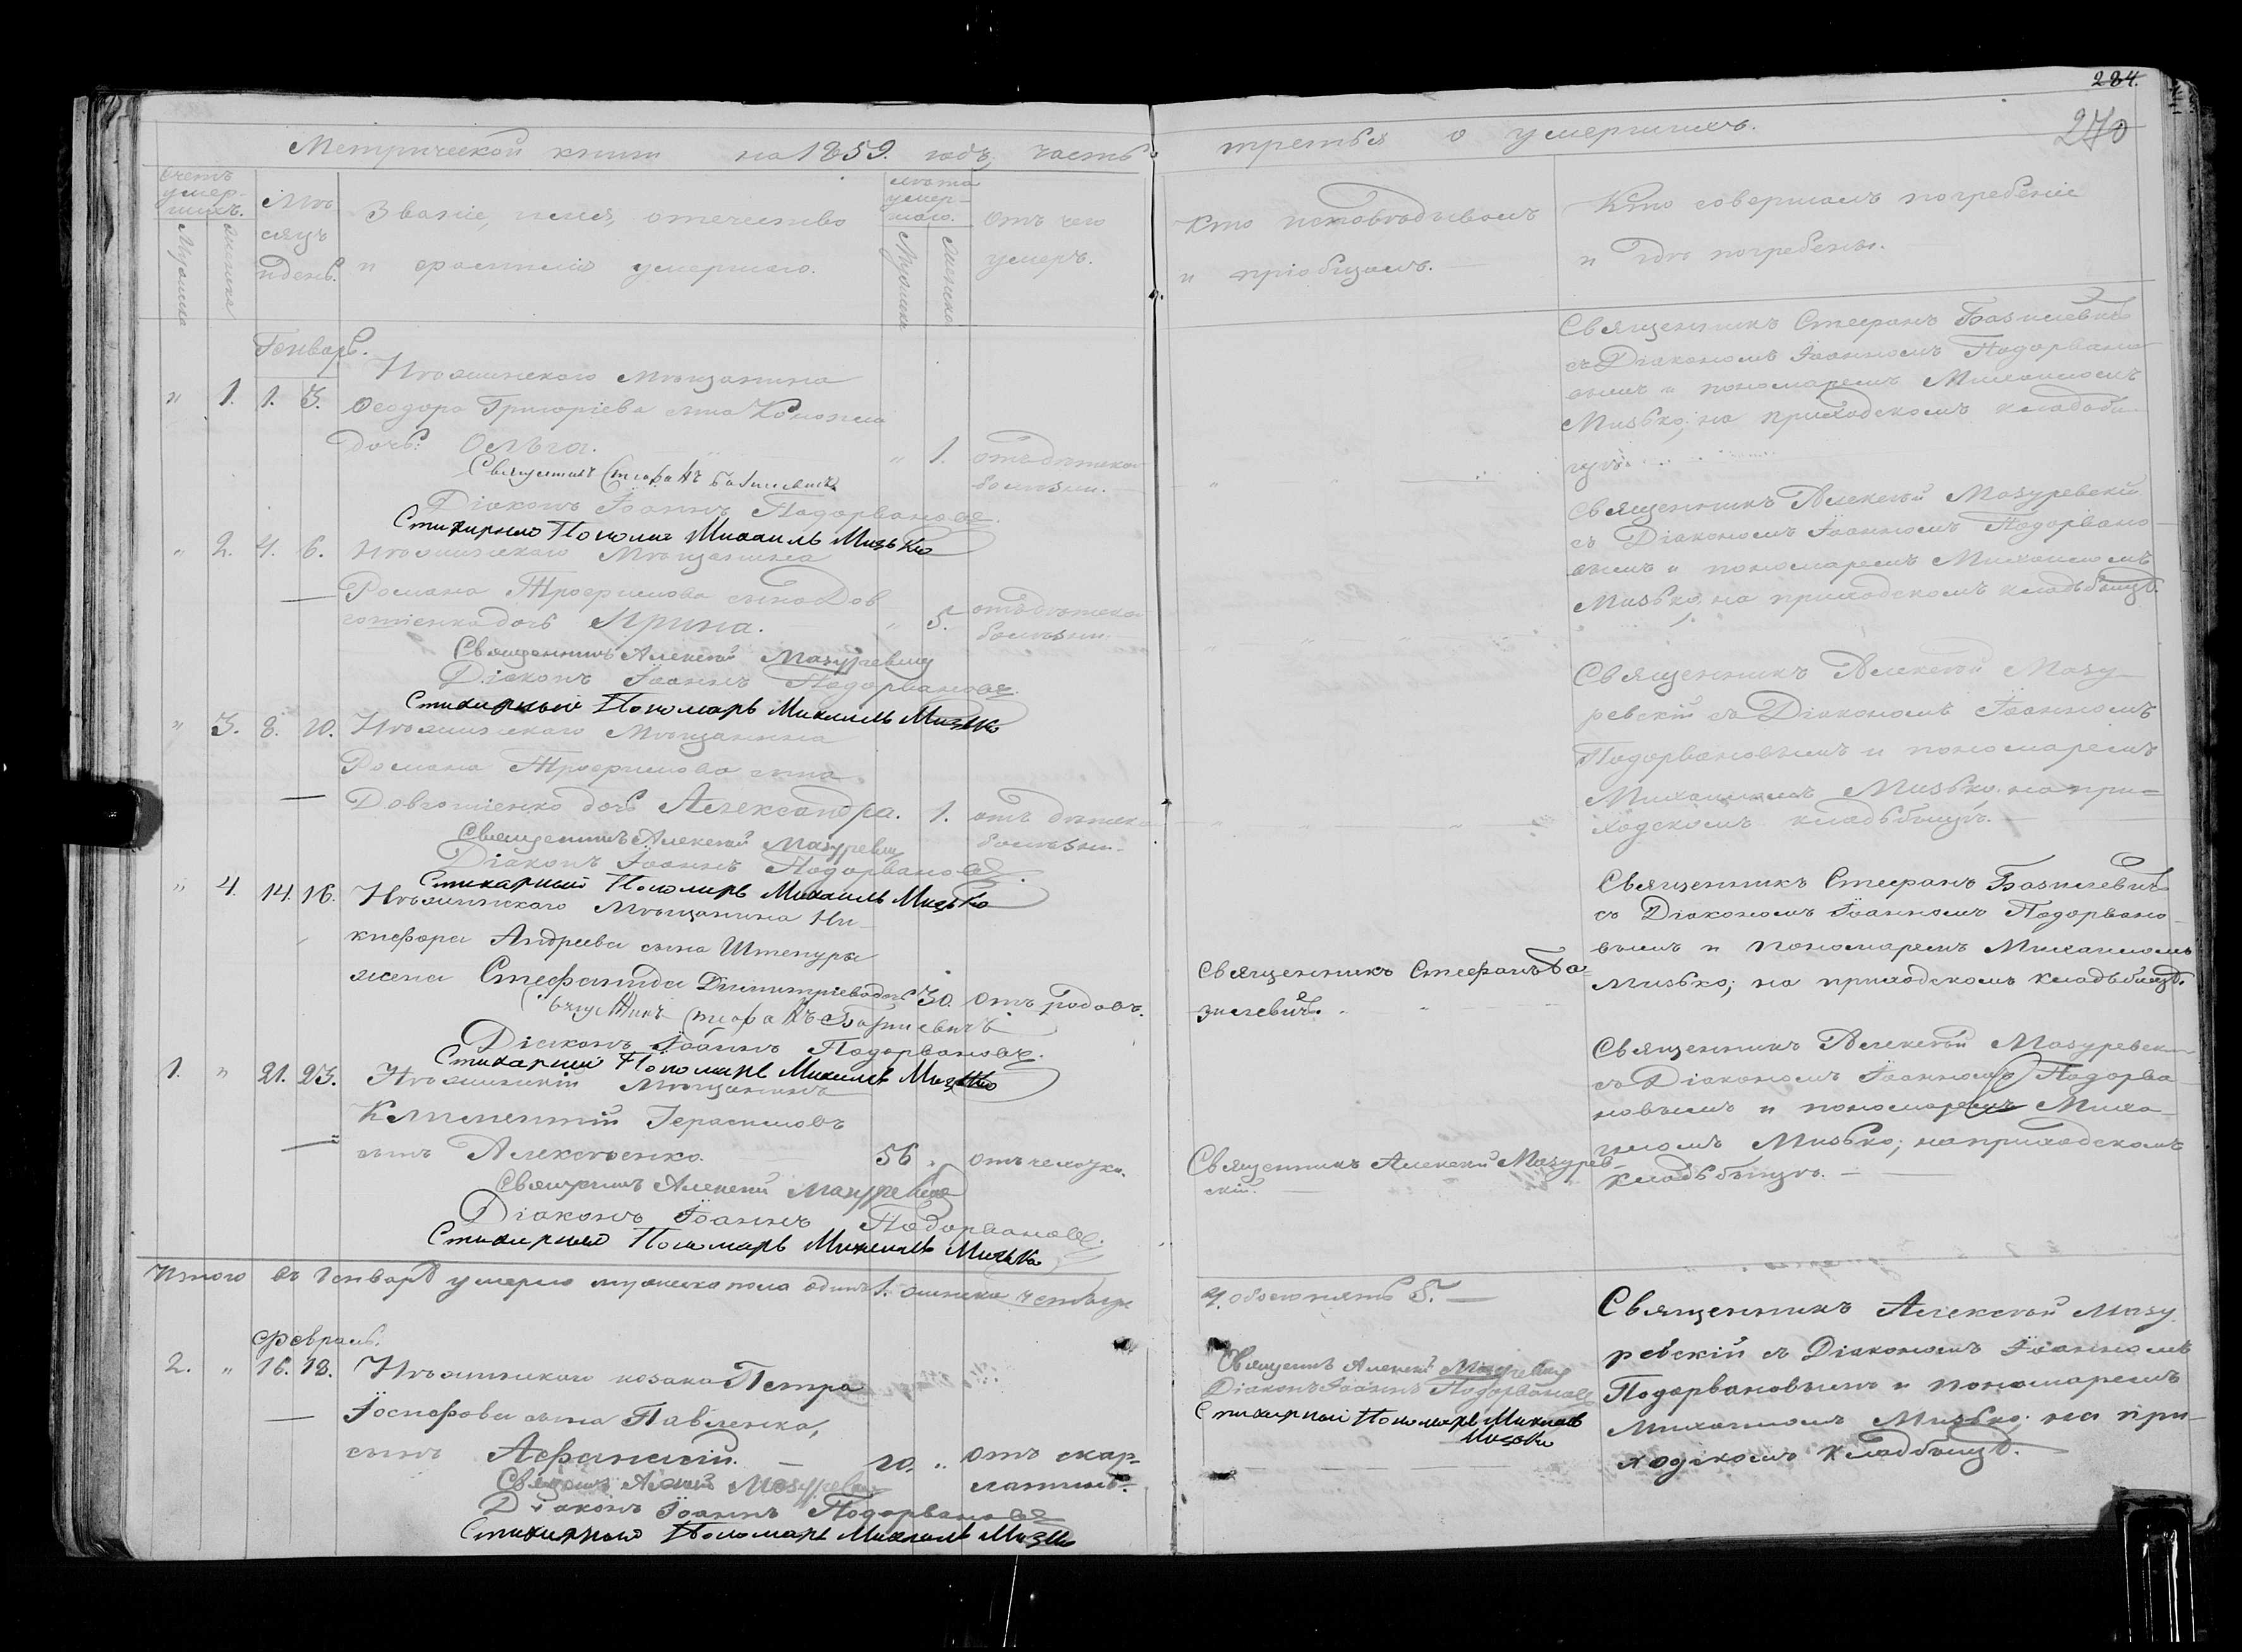 284.
270
Метрической книги на 1859. годъ, часть
третья о умершихъ.
Счетъ умер-шихъ.
Мужеска
Женска
Мѣ
сяцъ
и день.
Званіе, имя, отечество
и фамилія умершаго.
Лѣта умер-шаго.
Мужеска
Женска
Отъ чего
умеръ.
Кто исповѣдывалъ
и пріобщалъ.
Кто совершалъ погребеніе
и гдѣ погребены.
Генварь.
" 1. 1. 3. Нѣжинскаго мѣщанина
Ѳеодора Григоріева сына
дочь: Ольга. " 1. отъ дѣтской
болѣзни.
Священникъ Стефанъ Базилевичъ
Діаконъ Іоаннъ Подорвановъ.
Стихарный Пономарь Михаилъ Мизько
Священникъ Стефанъ Базилевичъ
съ Діакономъ Іоанномъ Подорвано
вымъ и пономаремъ Михаиломъ
Мизько; на приходскомъ кладьби
щѣ.
" 2. 4. 6. Нѣжинскаго Мѣщанина
Романа Трофимова сына Дов
готенка дочь Ирина. " 5. отъ дѣтской
болѣзни.
Священникъ Алексѣй Мазуревскій
Діаконъ Іоаннъ Подорвановъ.
Стихарный Пономарь Михаилъ Мизько
Священникъ Алексѣй Мазуревскій
съ Діакономъ Іоанномъ Подорвано-
вымъ и пономаремъ Михаиломъ
Мизько, на приходскомъ кладьбищѣ.
" 3. 8. 10. Нѣжинскаго Мѣщанина
Романа Трофимова сына
Довготенко дочь Александра. 1. отъ дѣтской
болѣзни.
Священникъ Алексѣй Мазуревскій
Діаконъ Іоаннъ Подорвановъ.
Стихарный Пономарь Михаилъ Мизько
Священникъ Алексѣй Мазу-
ревскій съ Діакономъ Іоанномъ
Подорвановымъ и пономаремъ
Михаиломъ Мизько. на при=
ходскомъ кладьбищѣ.
" 4. 14. 16. Нѣжинскаго Мѣщанина Ни-
кифора Андреева сына Штепуры
жена Стефанида Димитріева дочь 30. отъ родовъ.
Священникъ Стефанъ Базилевичъ
Діаконъ Іоаннъ Подорвановъ.
Стихарный Пономарь Михаилъ Мизько
Священникъ Стефанъ Ба=
зилевичъ.
Священникъ Стефанъ Базилевичъ
съ Діакономъ Іоанномъ Подорвано-
вымъ и Пономаремъ Михаиломъ
Мизько; на приходскомъ кладьбищѣ.
1. " 21. 23. Нѣжинскій Мѣщанинъ
Климентій Герасимовъ
сынъ Алексѣенко. 56 " отъ чахотки.
Священникъ Алексѣй Мазуревскій
Діаконъ Іоаннъ Подорвановъ.
Стихарный Пономарь Михаилъ Мизько
Священникъ Алексѣй Мазурев-
скій.
Священникъ Алексѣй Мазуревскій
съ Діакономъ Іоанномъ Подорва
новымъ и пономаремъ Миха-
иломъ Мизько; на приходскомъ
кладьбищѣ.
Итого въ Генварѣ умерло мужеска пола одинъ 1. женска четыре
4. обоего пять 5.
Февраль.
2. " 16. 18. Нѣжинскаго козака Петра
Іосифова сына Павленка,
сынъ Афанасій. 10. " отъ скар-
латины.
Священникъ Алексѣй Мазуревскій
Діаконъ Іоаннъ Подорвановъ
Стихарный Пономарь Михаилъ Мизько
Священникъ Алексѣй Мазуревскій
Діаконъ Іоаннъ Подорвановъ
Стихарный Пономарь Михаилъ
Мизько
Священникъ Алексѣй Мазу
ревскій съ Діакономъ Іоанномъ
Подорвановымъ и пономаремъ
Михаиломъ Мизько; на при-
ходскомъ кладбищѣ.